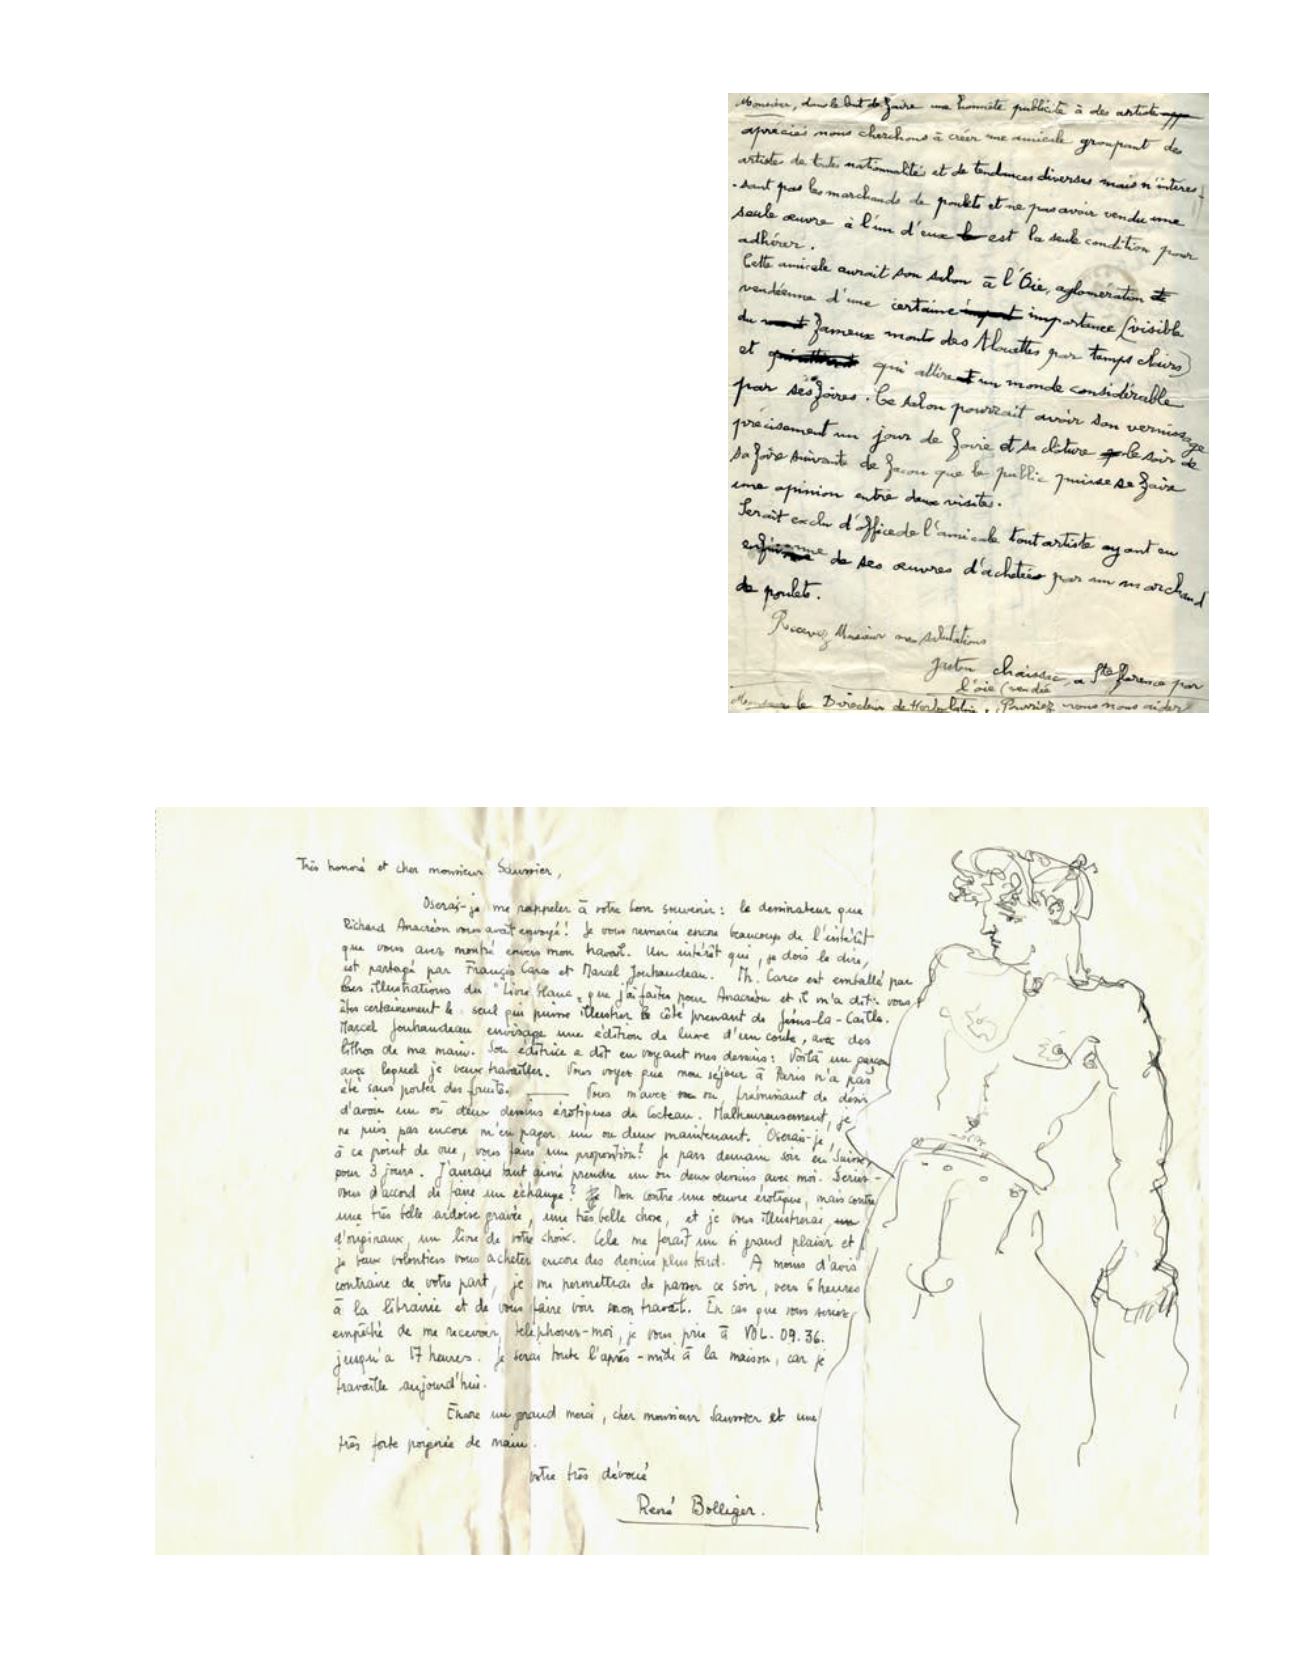 Monsieur, dans le but de faire une honnête publicité à des artistes
apréciés nous cherchons à créer une amicale groupant des
artistes de toutes nationnalités et de tendances diverses mais n'interes-
-sant pas les marchands de poulets et ne pas avoir vendu une
seule œuvre à l'un d'eux est la seule condition pour
adhérer.
Cette amicale aurait son salon à l'Oie, aglomération
vendéenne d'une certaine importance (visible
du fameux monts des Alouettes par temps clairs)
et qui attire un monde considérable
par ses foires. Ce salon pourrait avoir son vernissage
précisement un jour de foire et sa cloture le soir de
sa foire suivante de facon que le public puisse se faire
une opinion entre deux visites.
Serait exclu d'office de l'amicale tout artiste ayant eu
de ses œuvres d'achetées par un marchand
de poulets.
Recevez Monsieur mes salutations
gaston chaissac, a Ste florence par
l'oie (vendée
Monsieur le Directeur de . Pourriez vous nous aider
Très honoré et cher monsieur Saunier,
Oserai-je me rappeler à votre bon souvenir: le dessinateur que
Richard Anacréon vous avait envoyé! Je vous remercie encore beaucoup de l'intérêt
que vous avez montré envers mon travail. Un intérêt qui, je dois le dire,
est partagé par Francis Carco et Marcel Jouhandeau. M. Carco est emballé par
les illustrations du "Livre blanc" que j'ai faites pour Anacréon et il m'a dit: vous
êtes certainement le seul qui puisse illustrer le côté prenant de Jésus-la-Caille.
Marcel Jouhandeau envisage une édition de luxe d'un conte, avec des
lithos de ma main. Son éditrice a dit en voyant mes dessins: Voilà un garçon
avec lequel je veux travailler. Vous voyez que mon séjour à Paris n'a pas
été sans porter des fruits. Vous m'avez vu frémissant de désir
d'avoir un où deux dessins érotiques de Cocteau. Malheureusement, je
ne puis pas encore m'en payer un ou deux maintenant. Oserais-je,
à ce point de vue, vous faire une proposition? Je pars demain soir en Suisse,
pour 3 jours. J'aurais tant aimé prendre un ou deux dessins avec moi. Seriez-
vous d'accord de faire un échange? Non contre une œuvre érotique, mais contre
une très belle ardoise gravée, une très belle chose, et je vous illustrerai,
d'originaux, un livre de votre choix. Cela me ferait un si grand plaisir et
je veux volontiers vous acheter encore des dessins plus tard. A moins d'avis
contraire de votre part, je me permettrai de passer ce soir, vers 6 heures
à la librairie et de vous faire voir mon travail. En cas que vous seriez
empêché de me recevoir, téléphonez-moi, je vous prie à VOL. 09.36.
jusqu'à 17 heures. Je serai toute l'après-midi à la maison, car je
travaille aujourd'hui.
Encore un grand merci, cher monsieur Saunier et une
très forte poignée de main.
votre très dévoué
René Bolliger.